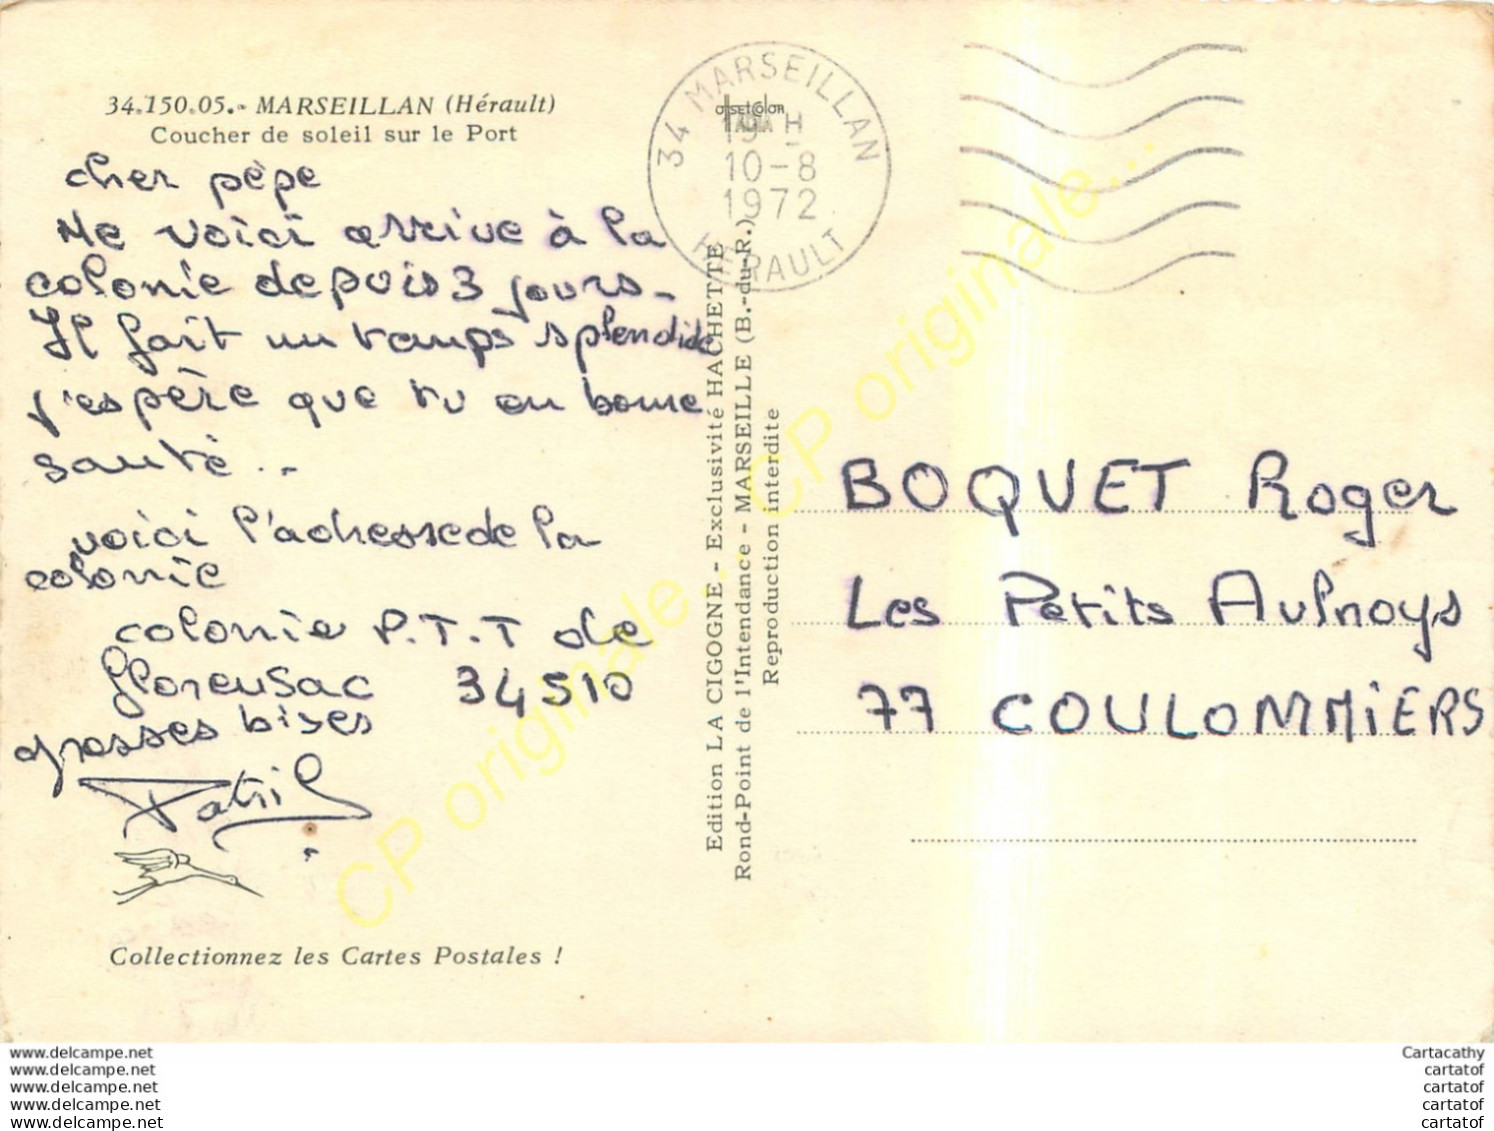 34.150.05.- MARSEILLAN (Hérault)
Coucher de soleil sur le Port
cher pépe
Me voici arrive à la
colonie depuis 3 jours -
Il fait un tamps splendide
j'espère que tu en bonne
santé..
voici l'adresse de la
colonie
colonie P.T.T de
florensac 34510
grosses bises
Patric
Collectionnez les Cartes Postales !
34 MARSEILLAN
19 H
10-8
1972
HERAULT
OffsetColor
IADIA
Edition LA CIGOGNE - Exclusivité HACHETTE
Rond-Point de l'Intendance - MARSEILLE (B.-du-R.)
Reproduction interdite
BOQUET Roger
Les Petits Aulnoys
77 COULOMMIERS
CP originale... CP originale...
www.delcampe.net
www.delcampe.net
www.delcampe.net
www.delcampe.net
www.delcampe.net
Cartacathy
cartatof
cartatof
cartatof
cartatof